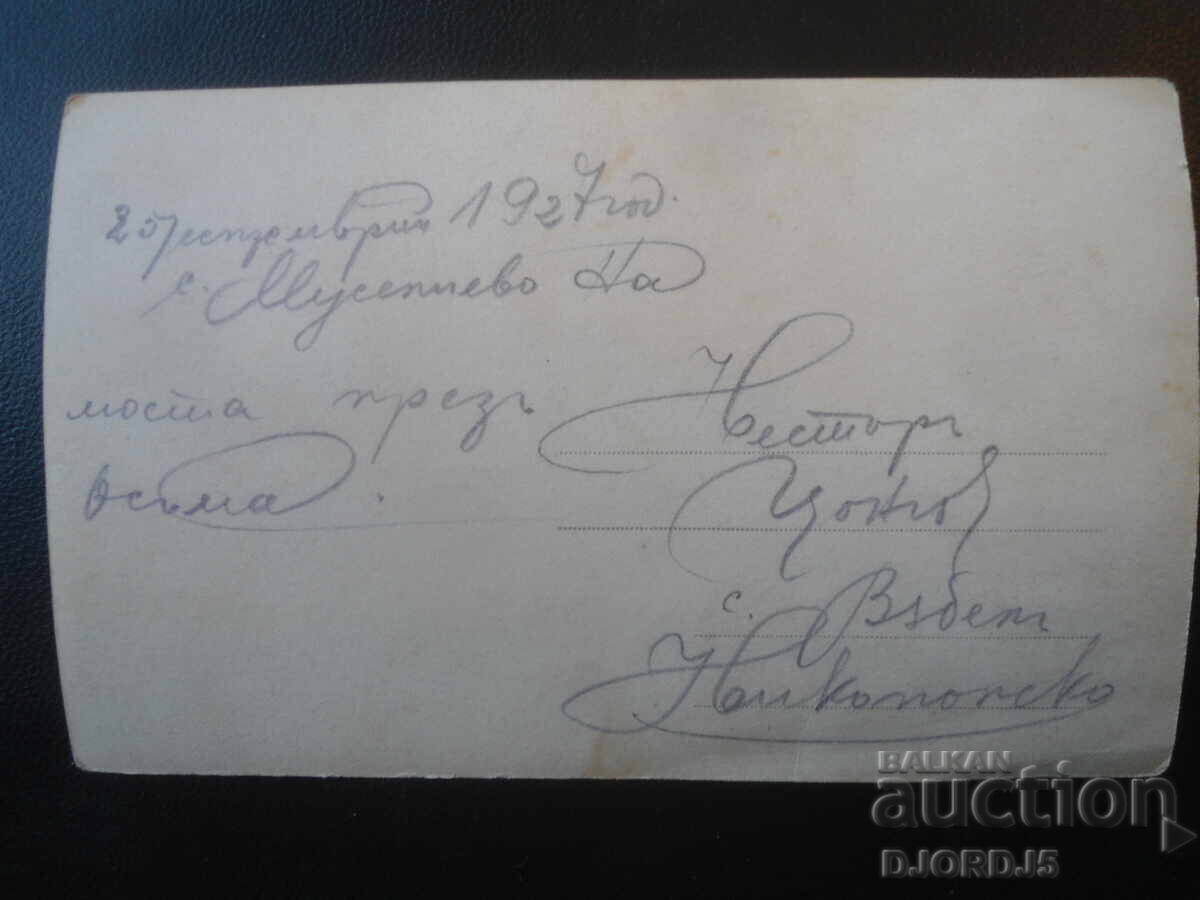 25/септемврий 1927 год.
с. Муселиево На
моста презъ
Осъма.
Несторъ
Цонов
с. Въбелъ
Никополско
BALKAN
auction
DJORDJ5